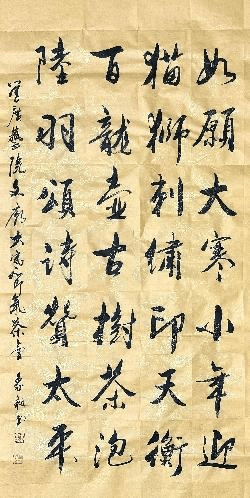 如願大寒小年迎
猫獅刺繡印天衡
百龍壺古樹茶泡
陸羽頌詩贊太平
藝院文廊大寒節氣茶會